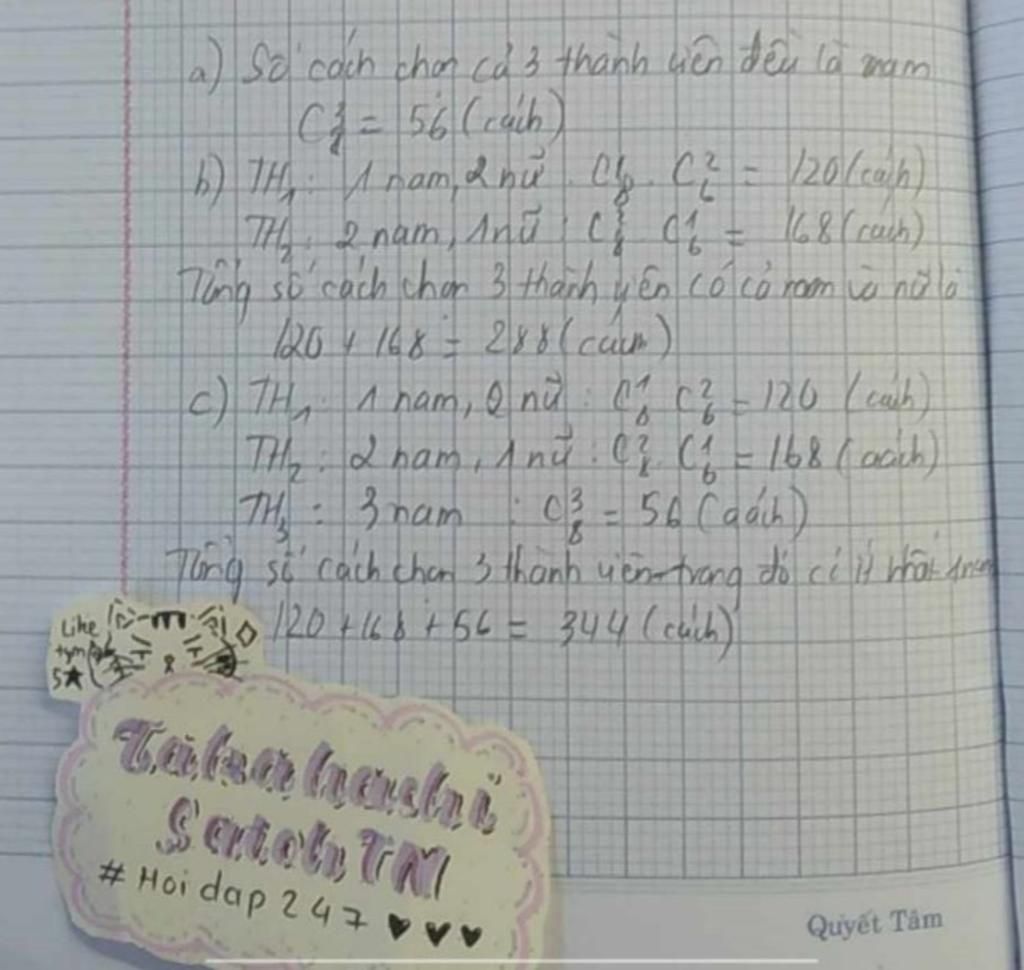 a) Số cách chọn cả 3 thành viên đều là nam
C³₈ = 56 (cách)
b) TH₁: 1 nam, 2 nữ : C¹₈ . C²₆ = 120 (cách)
TH₂: 2 nam, 1 nữ : C²₈ C¹₆ = 168 (cách)
Tổng số cách chọn 3 thành viên có cả nam và nữ là
120 + 168 = 288 (cách)
c) TH₁: 1 nam, 2 nữ : C¹₈ C²₆ = 120 (cách)
TH₂: 2 nam, 1 nữ : C²₈ C¹₆ = 168 (cách)
TH₃: 3 nam : C³₈ = 56 (cách)
Tổng số cách chọn 3 thành viên trong đó có ít nhất 1 nam
120 + 168 + 56 = 344 (cách)
Like
tym
5★
Takahashi
Satoh TM
# Hoi dap 247 ♥♥♥
Quyết Tâm